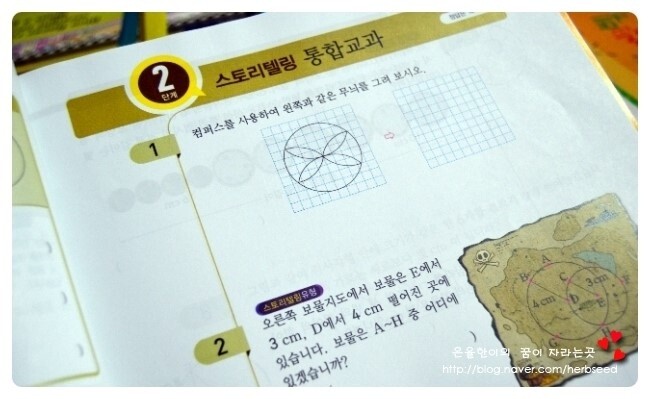 2
단계
스토리텔링 통합교과
1
컴퍼스를 사용하여 왼쪽과 같은 무늬를 그려 보시오.
2
스토리텔링유형
오른쪽 보물지도에서 보물은 E에서
3 cm, D에서 4 cm 떨어진 곳에
있습니다. 보물은 A~H 중 어디에
있겠습니까?
( )
A
B
C
3 cm
4 cm
D
E
꿈이 자라는곳
http://blog.naver.com/herbseed